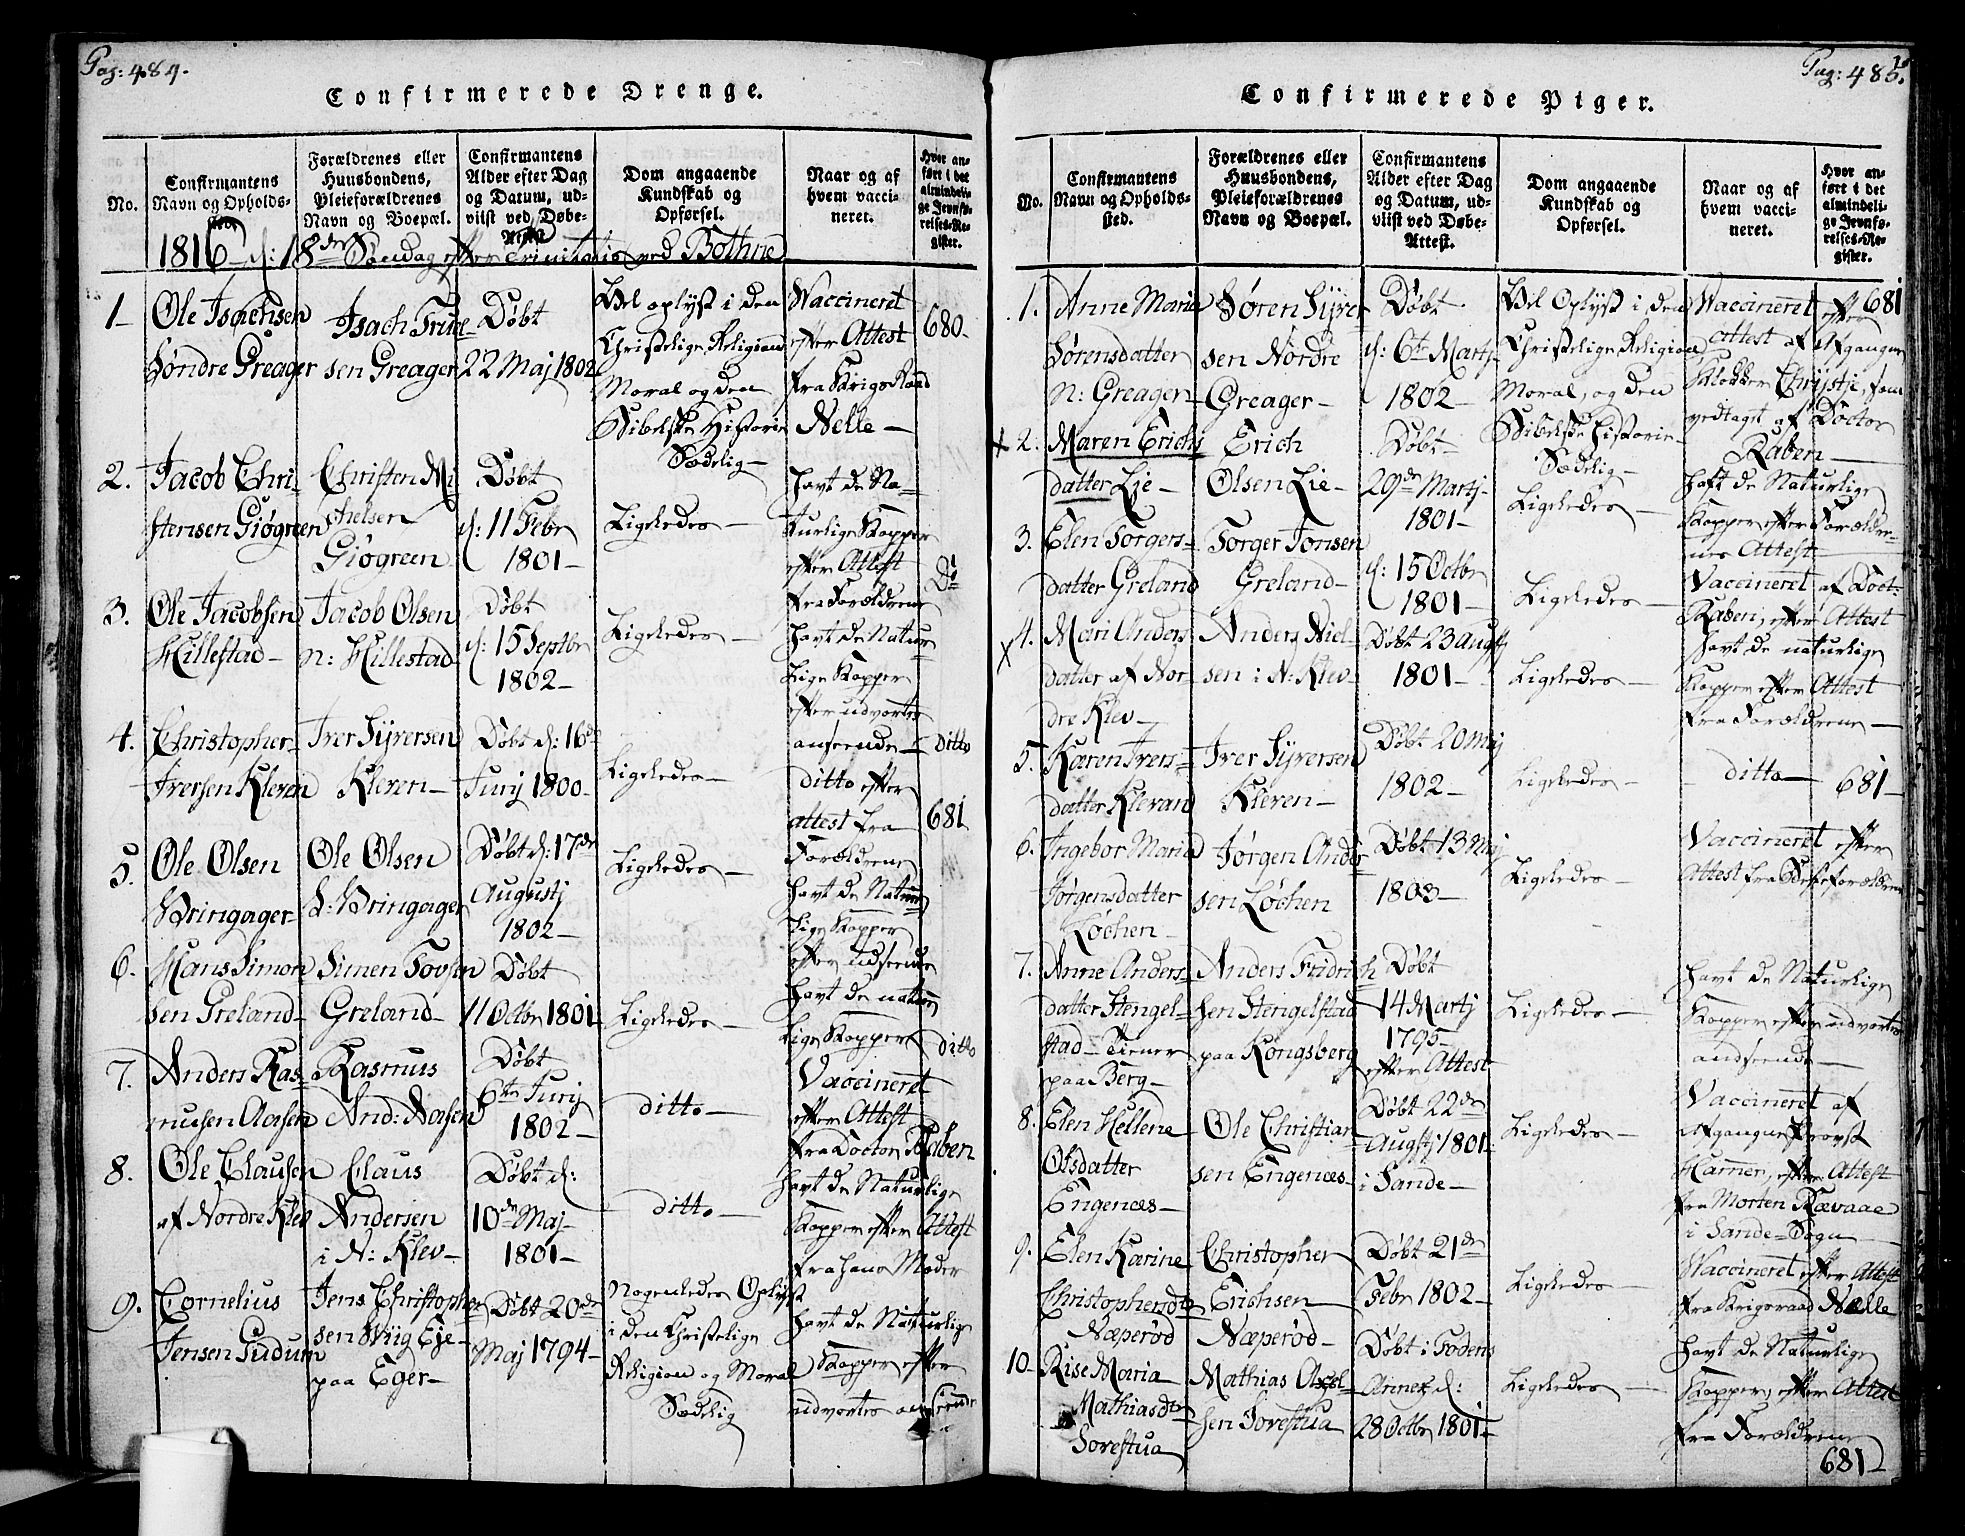 Pag: 484.
Confirmerede Drenge.
No.
Confirmantens Navn og Opholdssted.
Forældrenes eller Huusbondens, Pleieforældrenes Navn og Boepæl.
Confirmantens Alder efter Dag og Datum, udviist ved Døbe-Attest.
Dom angaaende Kundskab og Opførsel.
Naar og af hvem vaccineret.
Hvor anført i det almindelige Jevnførelses-Register.
1816 d: 18de Søndag efter Trinitatis ved Bothne
1
Ole Isachsen
Søndre Greager
Isach True
sen Greager
Døbt
22 Maj 1802
Vel oplyst i den
Christelige Religion
Moral og den
Bibelske Historie
Sædelig
Vaccineret
efter Attest
fra Krigs Raad
Nelle
680
2.
Jacob Chri
stensen Giøgreen
Christen Mi
chelsen
Giøgreen
Døbt
d: 11 Febr
1801
Ligeledes
havt de Na
turlige Kopper
efter Attest
fra Forældrene
Do
3.
Ole Jacobsen
Hillestad
Jacob Olsen
n: Hillestad
Døbt
d: 15 Septbr
1802
Ligeledes
havt de Natur
lige Kopper
efter udvortes
anseende
4.
Christopher
Iversen Kleven
Iver Syversen
Kleven
Døbt d: 16de
Junij 1800
Ligeledes
ditto efter
attest fra
Forældrene
ditto
5.
Ole Olsen
Bringager
Ole Olsen
L: Bringager
Døbt d: 17de
Augustj
1802
Ligeledes
havt de Natur
lige Kopper
efter udseende
681
6.
Hans Simon
sen Greland
Simen Tovsen
Greland
Døbt
11 Octbr 1801
Ligeledes
havt de natur
lige Kopper
ditto
7.
Anders Ras
musen Aasen
Rasmus
And: Aasen
Døbt
6te Junij
1802
ditto
Vaccineret
efter Attest
fra Doctor Raben
8.
Ole Clausen
af Nordre Klev
Claus
Andersen
i N: Klev
Døbt d:
10de Maj
1801
ditto
havt de Naturlige
Kopper efter Attest
fra hans Moder
9.
Cornelius
Jensen Gudum
Jens Christopher
sen Wiig Eje
paa Eger
Døbt 20de
Maj 1794
Nogenledes Oplyst
i den Christelige
Religion og Moral
Sædelig
havt de Naturlige
Kopper efter
udvortes anseende
Pag: 485.
Confirmerede Piger.
No.
Confirmantens Navn og Opholdssted.
Forældrenes eller Huusbondens, Pleieforældrenes Navn og Boepæl.
Confirmantens Alder efter Dag og Datum, udviist ved Døbe-Attest.
Dom angaaende Kundskab og Opførsel.
Naar og af hvem vaccineret.
Hvor anført i det almindelige Jevnførelses-Register.
1.
Anne Maria
Sørensdatter
n: Greager
Søren Syver
sen Nordre
Greager
Døbt
d: 6te Martj
1802
Vel Oplyst i den
Christelige Religion
Moral, og den
Bibelske Historie
Sædelig
Vaccineret efter
Attest af Afgangne
Klokker Chrystie, som
vedtaget af Doctor
Raben
681
x 2.
Maren Erichs
datter Lie
Erich
Olsen Lie
Døbt
29de Martj
1801
Ligeledes
haft de Naturlige
Kopper efter Forældre
nes Attest
3.
Elen Torgers
datter Greland
Torger Jonsen
Greland
d: 15 Octbr
1801
Ligeledes
Vaccineret af Doct:
Raben, efter Attest
x 4.
Mari Anders
datter af Nor
dre Klev
Anders Niel
sen i N: Klev
Døbt 23 Augstj
1801
Ligeledes
havt de naturlige
Kopper efter Attest
fra Forældrene
5.
Karen Ivers
datter Klevan
Iver Syversen
Kleven
Døbt 20 Maj
1802
Ligeledes
ditto
681
6.
Ingebor Maria
Jørgensdatter
Løchen
Jørgen Ander
sen Løchen
Døbt 13 Maj
1803
Ligeledes
Vaccineret efter
Attest fra Pleieforældrene
7.
Anne Anders
datter Stengel
stad Tiener
paa Berg
Anders Fridrich
sen Stengelstad
paa Kongsberg
Døbt
14 Martj
1795
efter Attest
Ligeledes
havt de Naturlige
Kopper efter udvortes
andseende
8.
Elen Hellene
Olsdatter
Engenæs
Ole Christian
sen Engenæs
Døbt 22de
Augstj 1801
i Sande
Ligeledes
Vaccineret af
Afgangne Provst
Hamer, efter Attest
fra Morten Rævaae
i Sande Sogn
9.
Elen Karine
Christophersdtr
Næperød
Christopher
Erichsen
Næperød
Døbt 21de
Febr 1802
Ligeledes
Vaccineret efter Attest
fra Krigsraad Nelle
10
Rise Maria
Mathiasdtr
Sorestua
Mathias Axel
sen Sorestua
Døbt i Fodens
Annex d:
28 Octbr 1801
Ligeledes
havt de Naturlige
Kopper, efter Attest
fra Forældrene
681